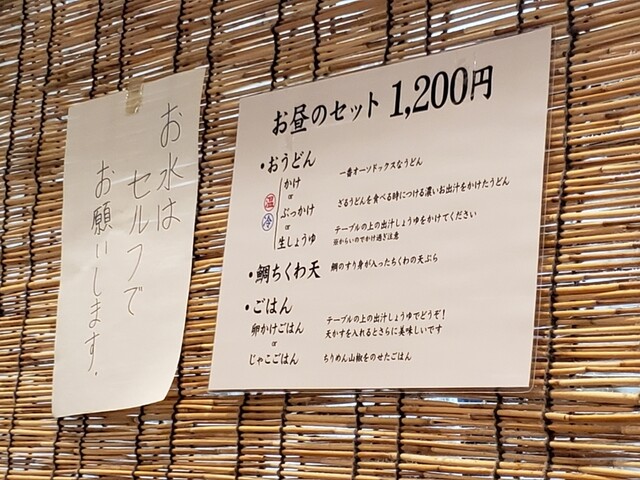 お水は
セルフで
お願いします。
お昼のセット 1,200円
・おうどん
かけ 一番オーソドックスなうどん
or
温
冷
ぶっかけ ざるうどんを食べる時につける濃いお出汁をかけたうどん
or
生しょうゆ テーブルの上の出汁しょうゆをかけてください
※からいのでかけ過ぎ注意
・鯛ちくわ天 鯛のすり身が入ったちくわの天ぷら
・ごはん
卵かけごはん テーブルの上の出汁しょうゆでどうぞ!
天かすを入れるとさらに美味しいです
or
じゃこごはん ちりめん山椒をのせたごはん